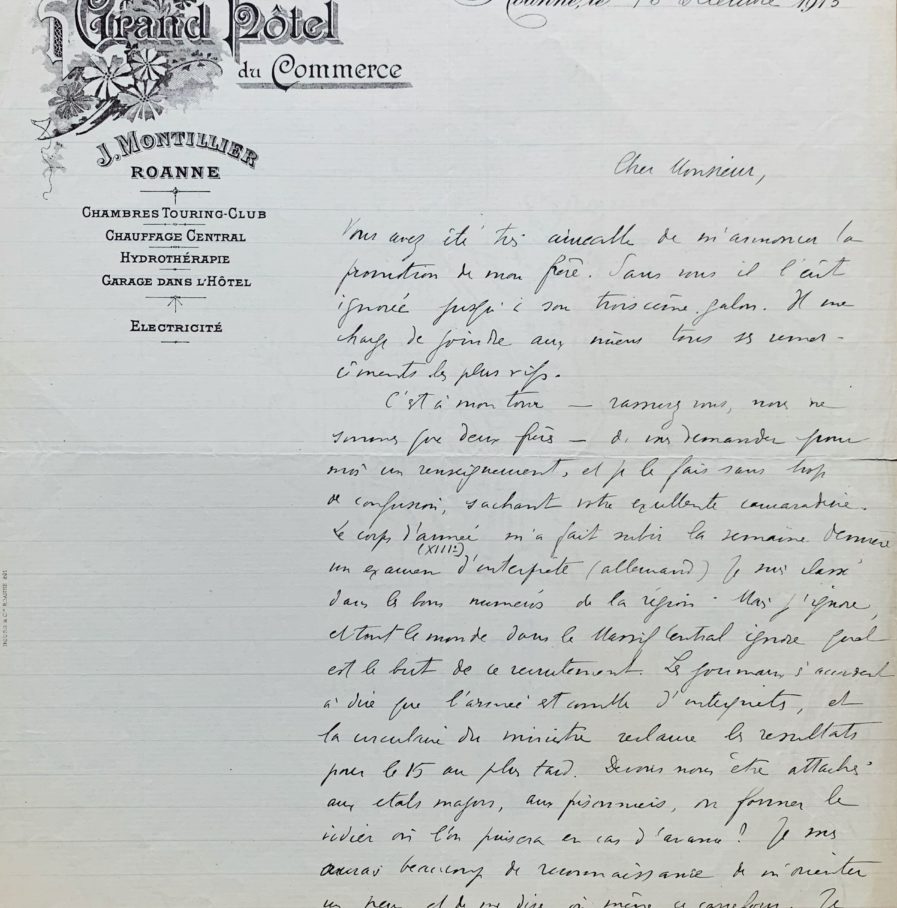 Grand Hôtel
du Commerce
J. MONTILLIER
ROANNE
CHAMBRES TOURING-CLUB
CHAUFFAGE CENTRAL
HYDROTHÉRAPIE
GARAGE DANS L'HÔTEL
ELECTRICITÉ
Roanne, le 1915
Cher Monsieur,
Vous avez été très aimable de m'annoncer la
promotion de mon frère. Sans vous il l'eût
ignorée jusqu'à son troisième galon. Il me
charge de joindre aux miens tous ses remer-
ciments les plus vifs.
C'est à mon tour — rassurez vous, nous ne
sommes que deux frères — de vous demander pour
moi un renseignement, et je le fais sans trop
de confusion, sachant votre excellente camaraderie.
Le corps d'armée m'a fait subir la semaine dernière
(XIIIe)
un examen d'interprète (allemand) Je suis classé
dans les bons numéros de la région. Mais j'ignore,
et tout le monde dans le Massif Central ignore quel
est le but de ce recrutement. Les journaux s'accordent
à dire que l'armée est comble d'interprètes, et
la circulaire du ministre réclame les résultats
pour le 15 au plus tard. Devons nous être attachés
aux états majors, aux prisonniers, ou former le
vivier où l'on puisera en cas d'avance ? Je vous
aurais beaucoup de reconnaissance de m'orienter
un peu et de me dire où mène ce carrefour. Je